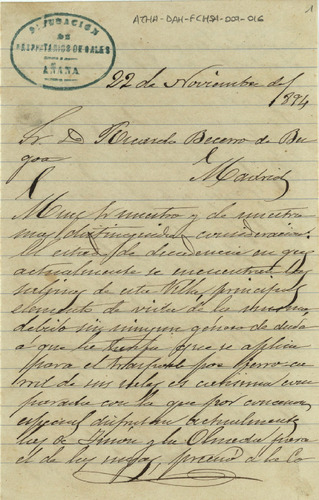 ATHA-DAH-FCHSA-002-016
1
DIPUTACION
DE
PROPIETARIOS DE SALES
AÑANA
22 de Noviembre de
1894
Sr. D Ricardo Becerro de Ben
goa
Madrid
Muy Sr nuestro y de nuestra
mas distinguida consideracion:
El estado de decadencia en que
actualmente se encuentran las
salinas de esta Villa, principal
elemento de vida de la misma,
debido sin ningun género de duda
a que la tarifa que se aplica
para el trasporte por ferro-ca-
rril de sus sales es carísima com
parada con la que por concesion
especial disfrutan actualmente
las de Imón y la Olmeda para
el de las suyas, precisó a la Co